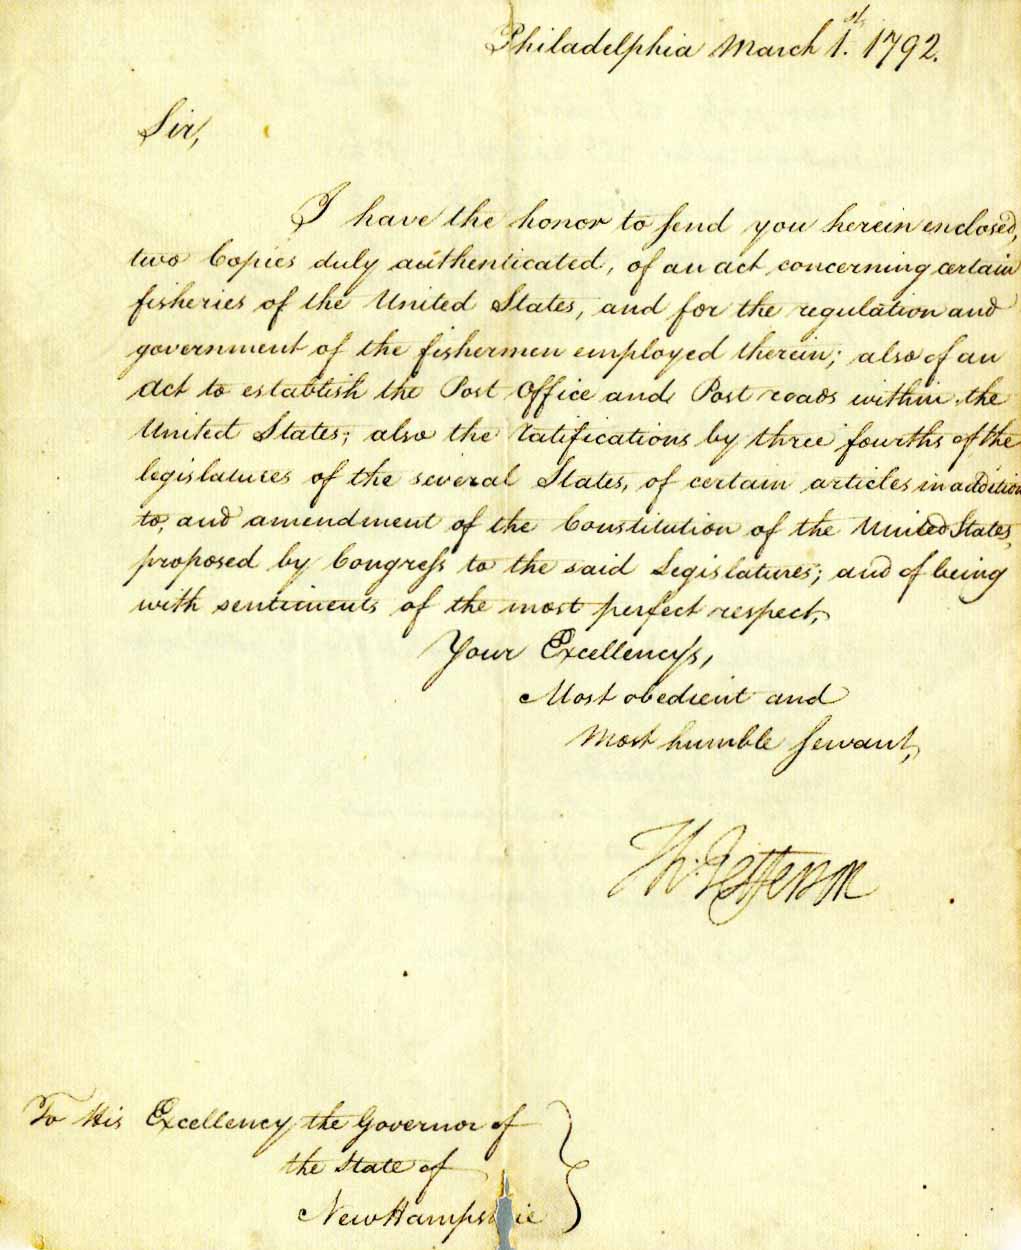 Philadelphia March 1.st 1792.
Sir,
I have the honor to send you herein enclosed,
two Copies duly authenticated, of an act concerning certain
fisheries of the United States, and for the regulation and
government of the fishermen employed therein; also of an
Act to establish the Post Office and Post roads within the
United States; also the ratifications by three fourths of the
legislatures of the several States, of certain articles in addition
to, and amendment of the Constitution of the United States,
proposed by Congress to the said Legislatures; and of being
with sentiments of the most perfect respect,
Your Excellency's,
Most obedient and
Most humble servant,
Th: Jefferson
To His Excellency the Governor of
the State of
New Hampshire